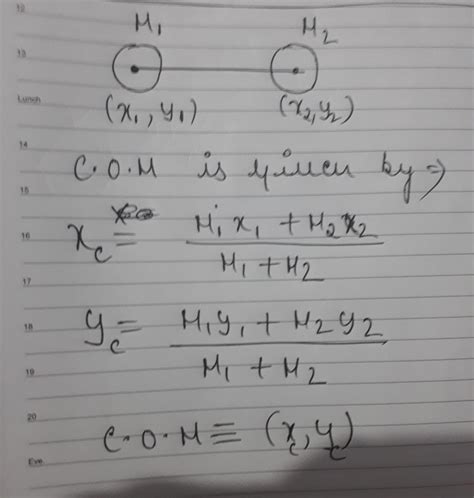 12
M₁ M₂
13
Lunch
(x₁, y₁) (x₂, y₂)
14
C.O.M is given by ⇒
15
16
x_c = (M₁x₁ + M₂x₂) / (M₁ + M₂)
17
18
y_c = (M₁y₁ + M₂y₂) / (M₁ + M₂)
19
20
C.O.M ≡ (x_c, y_c)
Eve.